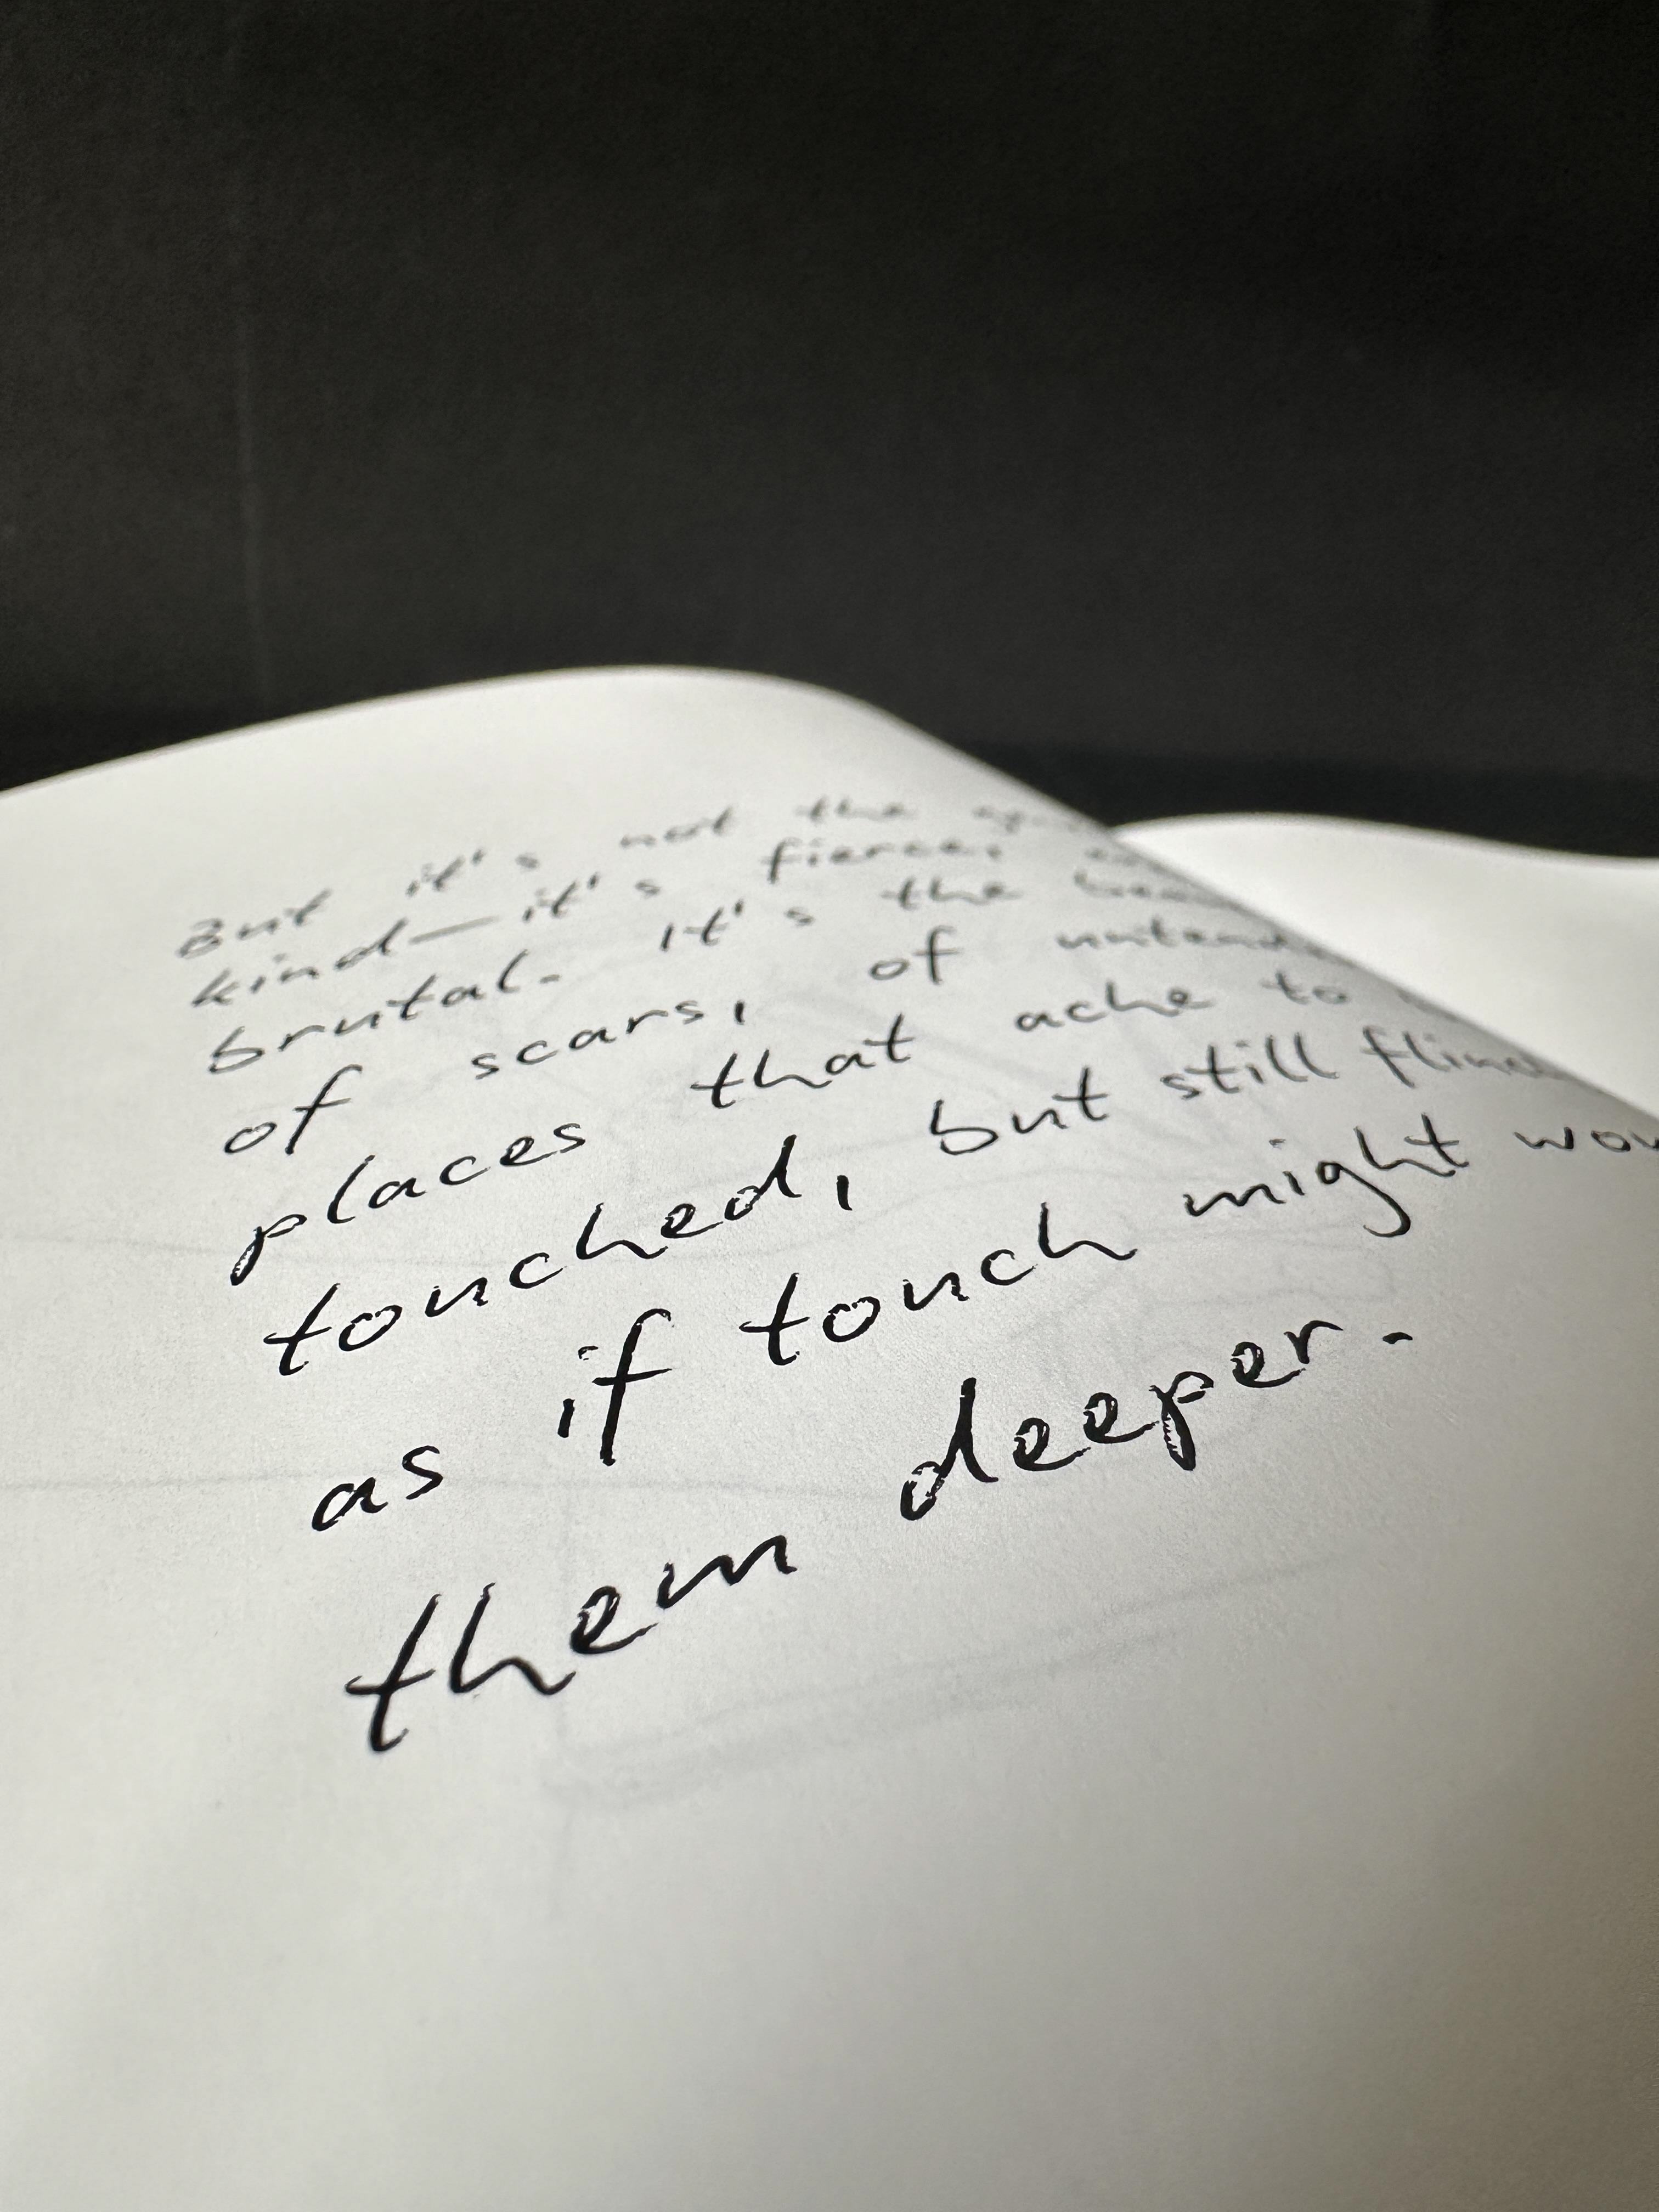 But it's not the
kind—it's fierce,
brutal. It's the
of scars, of
places that ache to
touched, but still
as if touch might
them deeper.